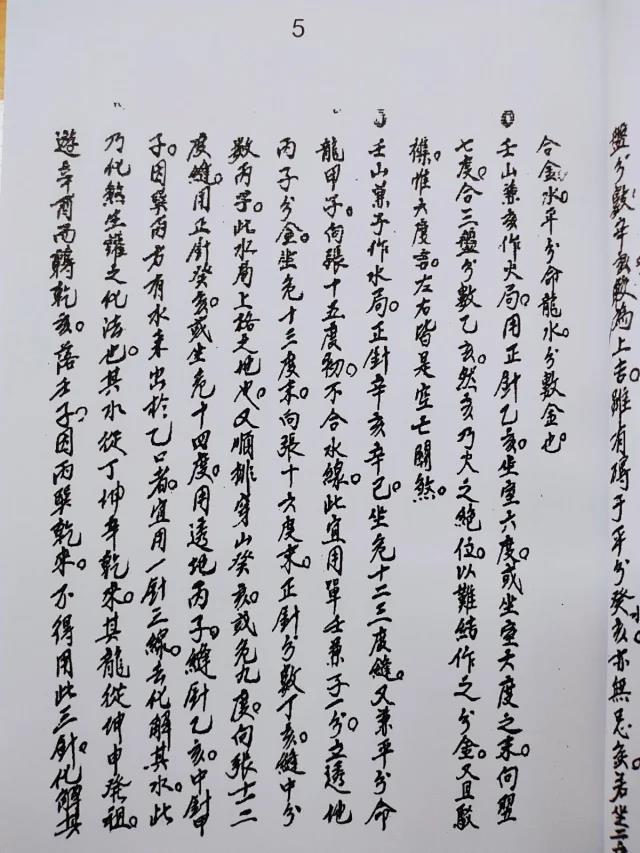 5
合金水。平分命龍水。分數金也。
壬山兼亥作火局。用正針乙亥。坐室六度。或坐室六度之末。向翌
七度。合三盤分數乙亥。然亥乃火之絕位。以難結作之分金。又且駁
襍。惟六度言。左右皆是空亡關煞。
壬山兼子作水局。正針辛亥辛巳。坐危十二三度縫。又兼平分命
龍甲子。向張十五度初。不合水線。此宜用單壬兼子一分。立透地
丙子分金。坐危十三度末。向張十六度末。正針分數丁亥。縫中分
數丙子。此水局上格之地也。又順排穿山癸亥。或危九度。向張十二
度縫。用正針癸亥。或坐危十四度。用透地丙子。縫針乙亥。中針甲
子。因巽丙方有水來出於乙口者。宜用一針三線去化解其水。此
乃化煞生權之化法也。其水從丁坤辛乾來。其龍從坤申發祖。
遊辛酉而轉乾亥。落壬子。因丙巽乾來。不得用此三針化解其
盤分數辛亥 為上吉。雖有 于平分癸亥水。亦無忌矣。若坐